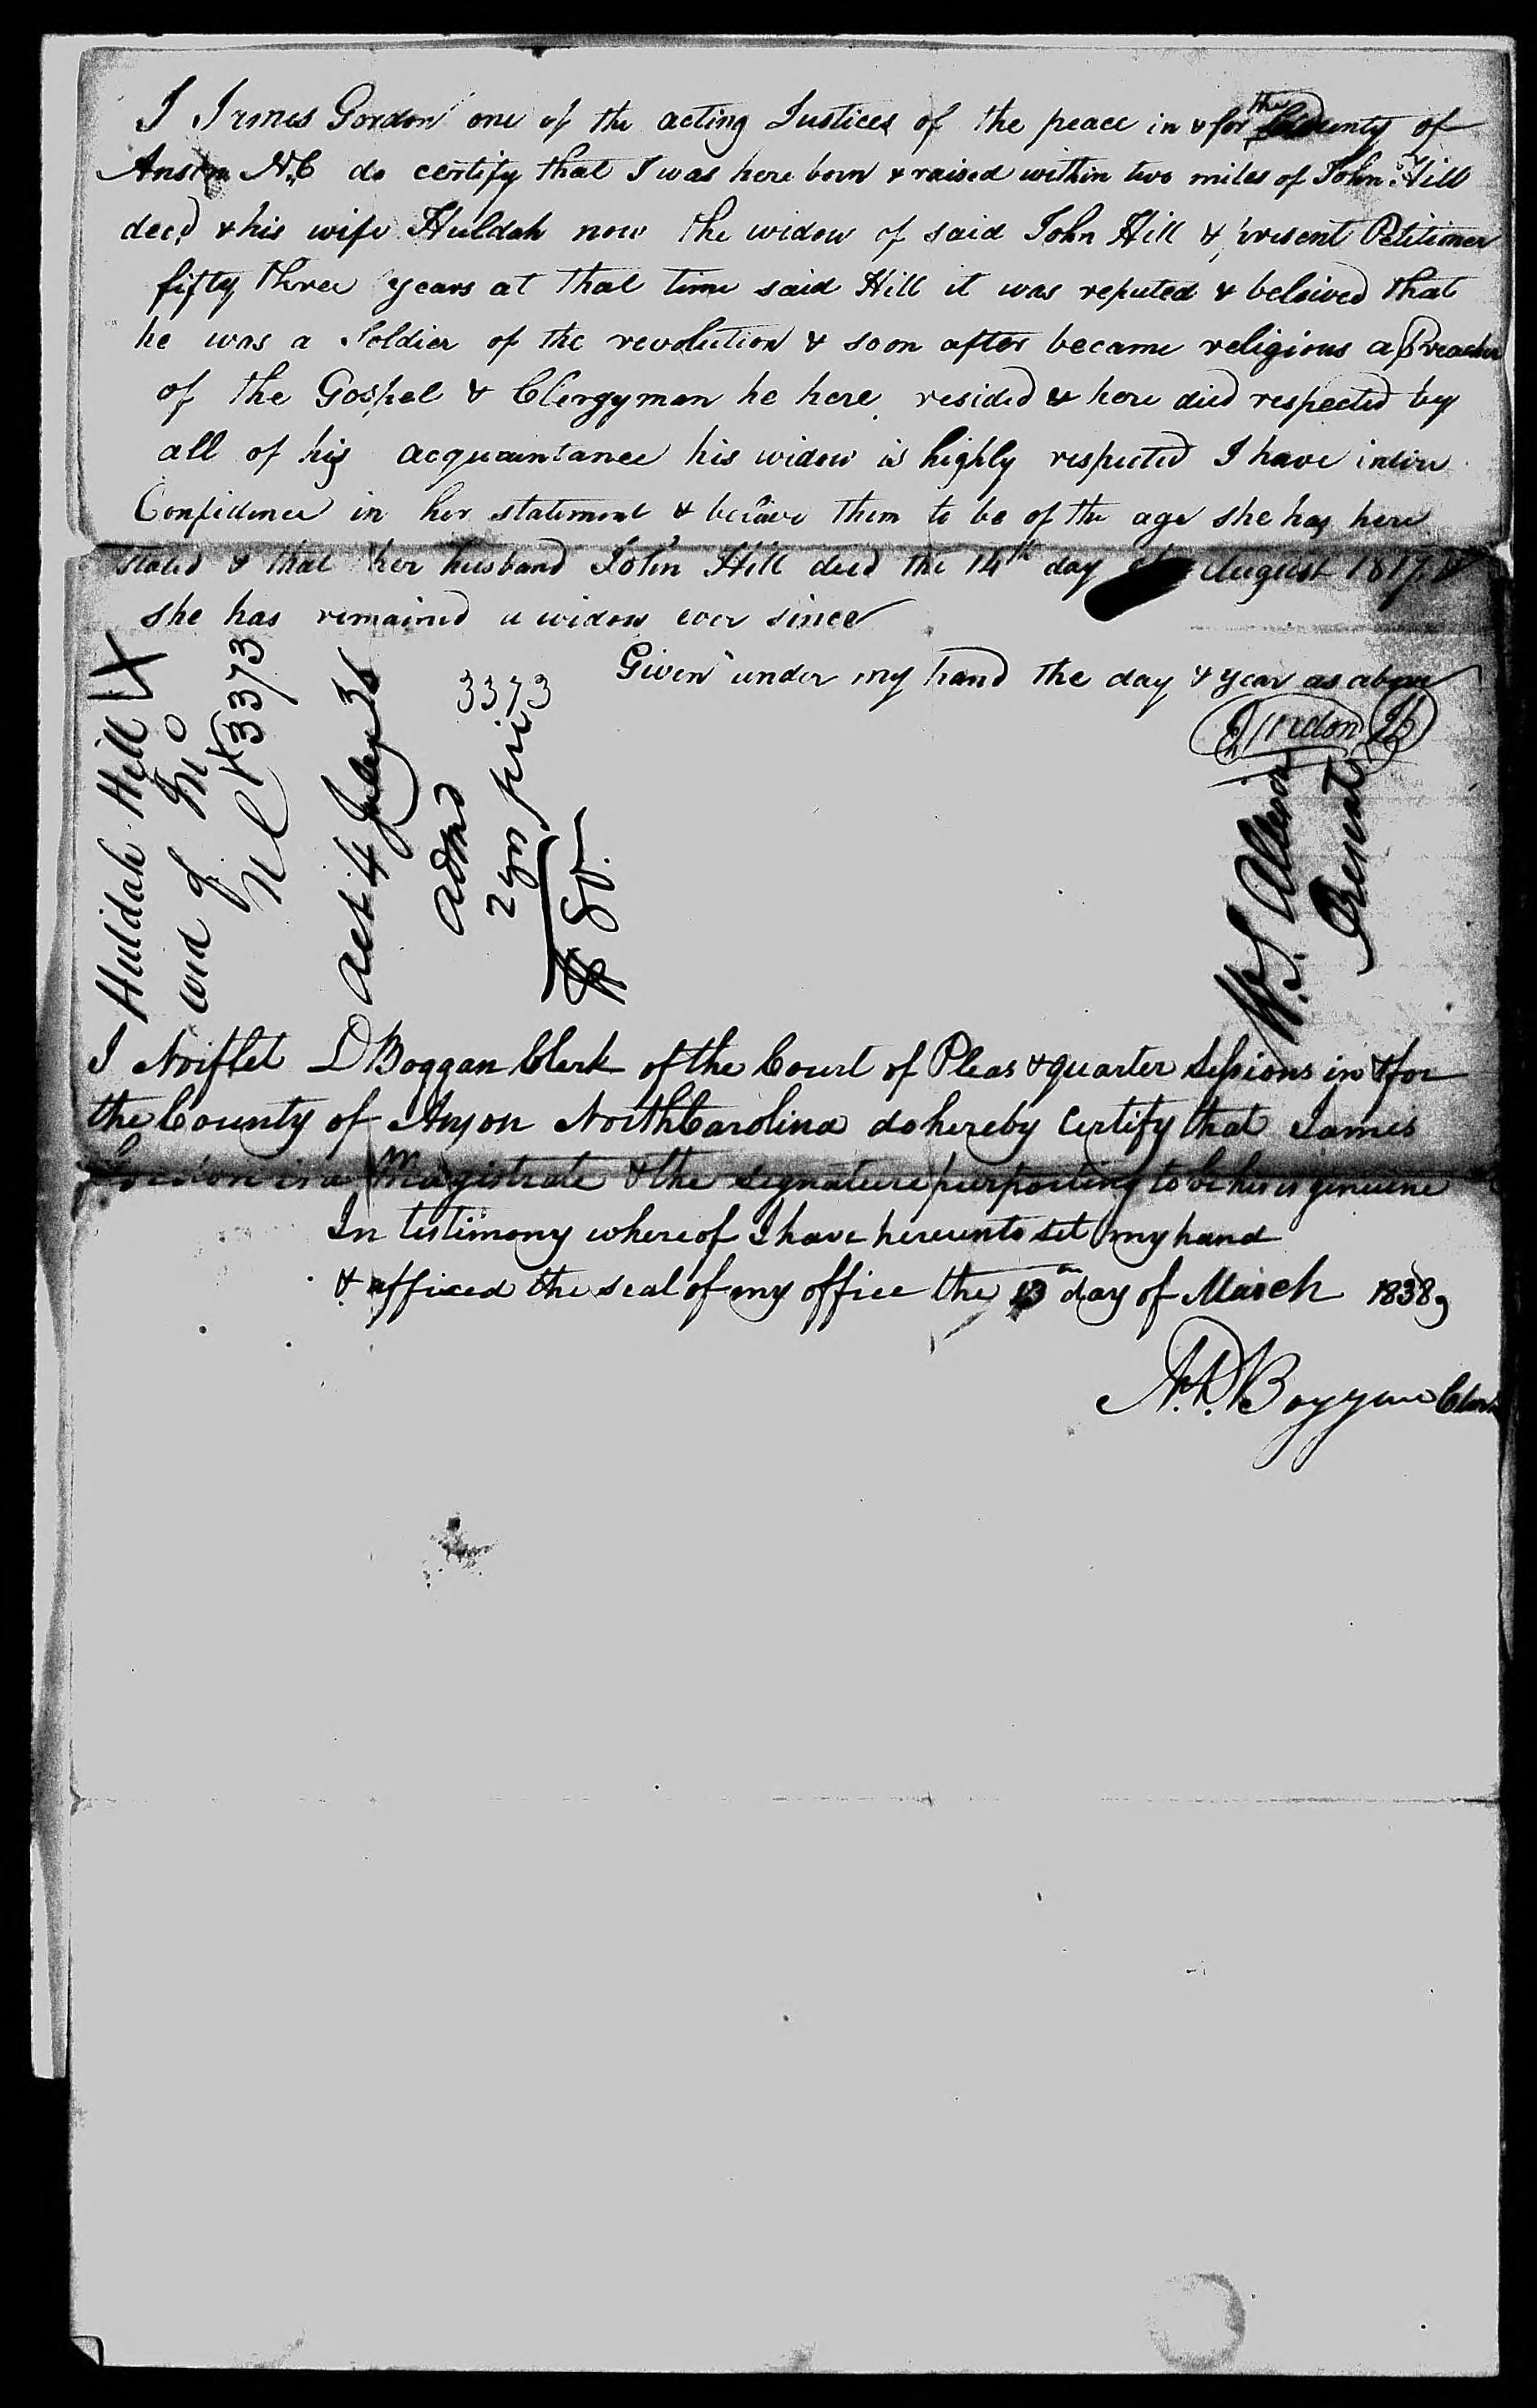 I James Gordon one of the acting Justices of the peace in & for the County of
Anson N.C do certify that I was here born & raised within two miles of John Hill
decd & his wife Huldah now the widow of said John Hill & present Petitioner
fifty three years at that time said Hill it was reputed & beleived that
he was a Soldier of the revolution & soon after became religious a Preacher
of the Gospel & Clergyman he here resided & here died respected by
all of his acquaintance his widow is highly respected I have intire
Confidence in her statement & beleive them to be of the age she has here
stated & that her husband John Hill died the 14th day August 1817 &
she has remained a widow ever since
Given under my hand the day & year as above
J Gordon JP
3373
Huldah Hill
wid of Jno
N C 3373
Act 4 July 36
Admd
2 yrs
W. S. Allen
Present
I Norflet D Boggan Clerk of the Court of Pleas & quarter Sessions in & for
the County of Anson North Carolina do hereby Certify that James
Gordon is a Magistrate & the signature purporting to be his is genuine
In testimony whereof I have hereunto set my hand
& affixed the seal of my office the 13th day of March 1838,
N. D. Boggan Clerk